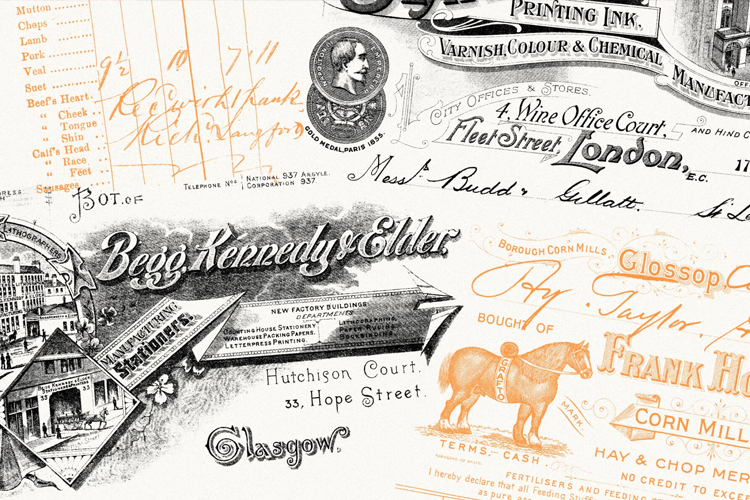 Mutton
Chops
Lamb
Pork
Veal
Suet
Beef's Heart
" Cheek
" Tongue
" Shin
Calf's Head
" Race
" Feet
Sausages
9½ 10 7·11
Rec with thanks
Rich. Langford
GOLD MEDAL, PARIS 1855.
PRINTING INK.
VARNISH, COLOUR & CHEMICAL MANUFACT
CITY OFFICES & STORES.
4, Wine Office Court,
Fleet Street, London, E.C.
AND HIND C
17
TELEPHONE Nos NATIONAL 937 ARGYLE.
CORPORATION 937.
BOT. OF
Messrs Budd & Gillatt.
LITHOGRAPHERS
Begg, Kennedy & Elder.
MANUFACTURING
Stationers.
NEW FACTORY BUILDINGS
DEPARTMENTS
COUNTING HOUSE STATIONERY
WAREHOUSE PACKING PAPERS.
LETTERPRESS PRINTING.
LITHOGRAPHING.
PAPER RULING.
BOOKBINDING.
33 33
Hutchison Court.
33, Hope Street.
Glasgow.
BOROUGH CORN MILLS,
Glossop,
Hy. Taylor.
BOUGHT OF
FRANK HO
GRAFTO
MARK
CORN MILL
TERMS, - CASH
HAY & CHOP MER
NO CREDIT TO EXCE
FERTILISERS AND FEEDING
I hereby declare that all Feeding Stuff
as pure,